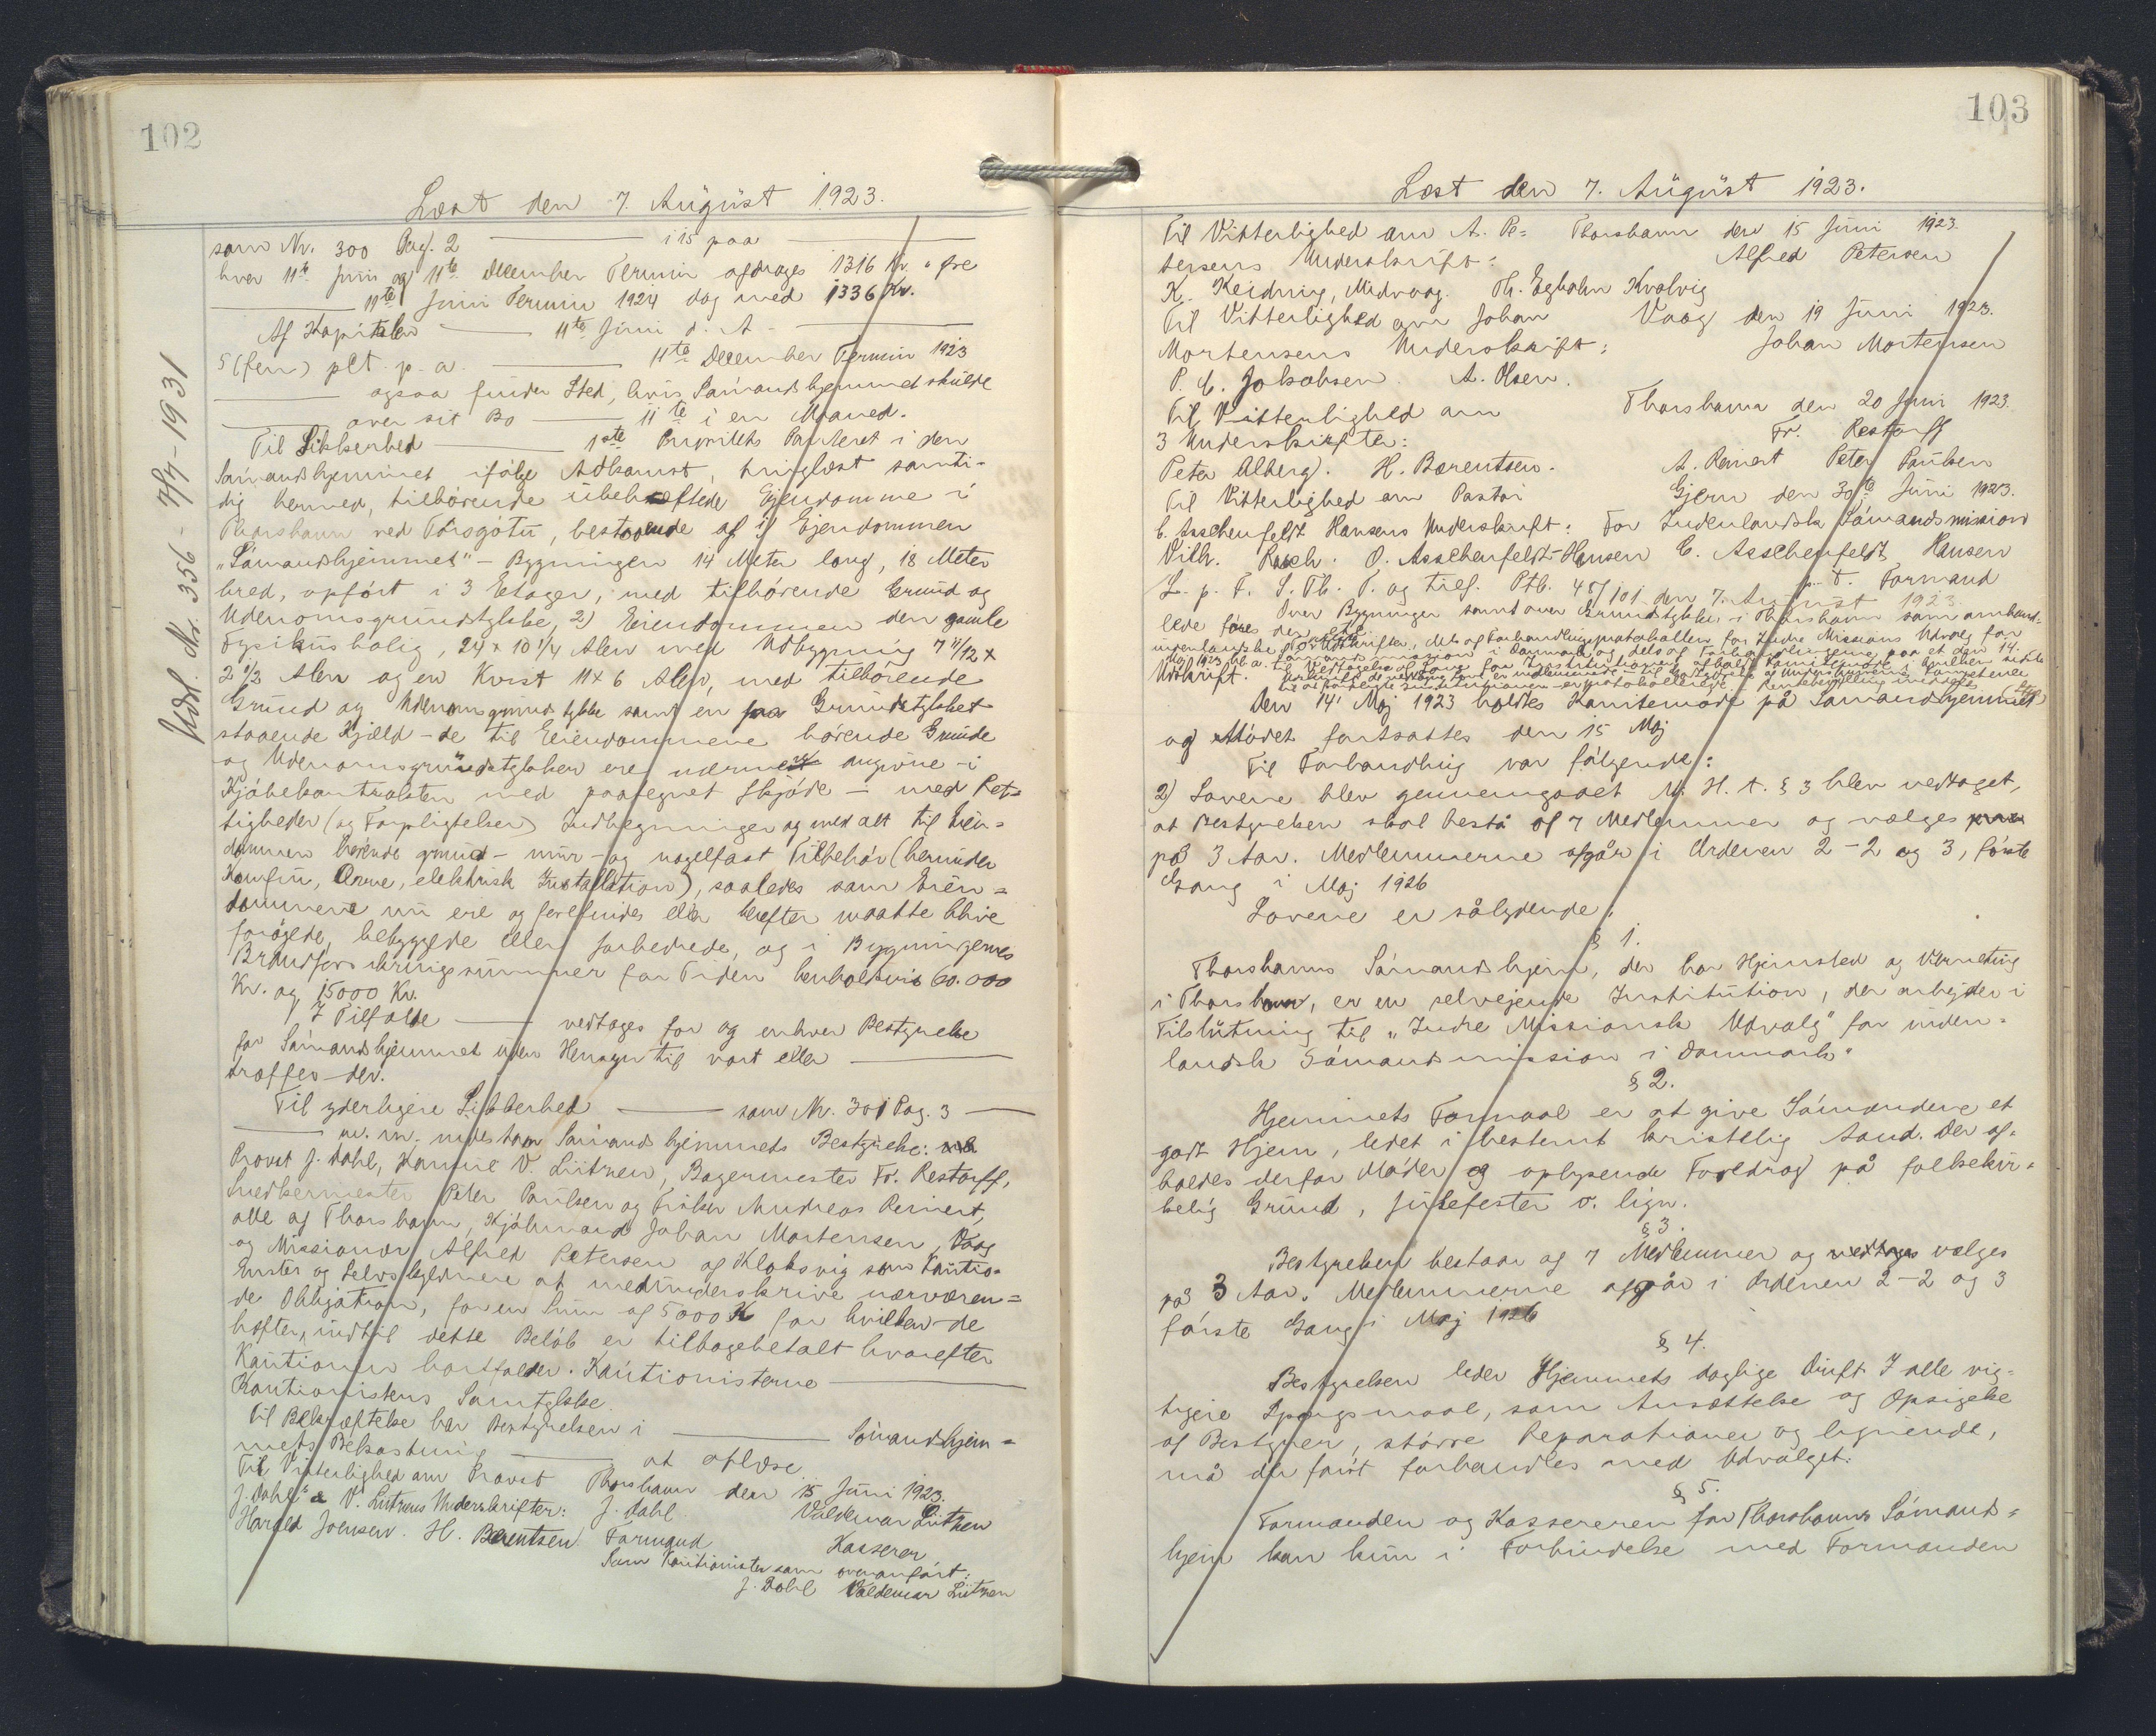 102
Læst den 7. August 1923.
Udsl. Nr. 356 - 7/7-1931
som Nr. 300 Pag. 2 ——— i 15 paa ———
hver 11te Juni og 11te December Termin afdrages 1316 Kr.
——— 11te Juni Termin 1924 dog med 1336 Kr.
Af Kapitalen ——— 11te Juni d. A. ———
5 (fem) pCt. p. a. ——— 11te December Termin 1923
——— ogsaa finder Sted, hvis Sømandshjemmet skulde
——— over sit Bo ——— 11te i en Maaned.
Til Sikkerhed ——— 1ste Prioritets Panteret i den
Sømandshjemmet ifølge Adkomst, tinglæst samti-
dig hermed, tilhørende ubehæftede Ejendomme i
Thorshavn ved Tórsgøtu, bestaaende af 1) Ejendommen
"Sømandshjemmet" - Bygningen 14 Meter lang, 18 Meter
bred, opført i 3 Etager, med tilhørende Grund og
Udenomsgrundstykke, 2) Eiendommen den gamle
Fysikusbolig, 24 x 10 1/4 Alen med Udbygning 7 11/12 x
2 1/2 Alen og en Kvist 11 x 6 Alen, med tilhørende
Grund og Udenomsgrundstykke samt en paa Grundstykket
staaende Kjæld - de til Eiendommene hørende Grunde
og Udenomsgrundstykker ere nærmere angivne i
Kjøbekontrakten med paategnet Skjøde - med Ret-
tigheder (og Forpligtelser) Indhegninger og med alt til Eien-
dommen hørende grund- mur- og nagelfast Tilbehør (herunder
Komfur, Ovne, elektrisk Installation), saaledes som Eien-
dommene nu ere og forefindes eller herefter maatte blive
forøgede, bebyggede eller forbedrede, og i Bygningernes
Brandforsikringssummer for Tiden henholdsvis 60.000
Kr. og 15000 Kr.
I Tilfælde ——— vedtages for og enhver Bestyrelse
for Sømandshjemmet uden Hensyn til vort eller ———
træffes der.
Til yderligere Sikkerhed ——— som Nr. 301 Pag. 3 ———
——— m. m. indestaar Sømandshjemmets Bestyrelse:
Provst J. Dahl, Kæmner V. Lützen, Bagermester Fr. Restorff,
Snedkermester Peter Paulsen og Fisker Andreas Reinert,
alle af Thorshavn, Kjøbmand Johan Mortensen, Vaag
og Missionær Alfred Petersen af Klaksvig som Kautio-
nister og Selvskyldnere at medunderskrive nærværen-
de Obligation, for en Sum af 5000 Kr for hvilken de
hæfter, indtil dette Beløb er tilbagebetalt hvorefter
Kautionen bortfalder. Kautionisterne ———
Kautionistens Samtykke.
Til Bekræftelse har Bestyrelsen i ——— Sømandshjem-
mets Bekostning ——— at aflæse.
Til Vitterlighed om Provst Thorshavn den 15 Juni 1923.
J. Dahl's & V. Lützens Underskrifter: J. Dahl. Valdemar Lützen
Harald Joensen. H. Berentsen. Formand Kasserer
Som Kautionister som ovenanført:
J. Dahl Valdemar Lützen
103
Læst den 7. August 1923.
Til Vitterlighed om A. Pe- Thorshavn den 15 Juni 1923.
tersens Underskrift: Alfred Petersen
K. Keidning, Midvaag. Th. Egholm Kvalvig
Til Vitterlighed om Johan Vaag den 19 Juni 1923.
Mortensens Underskrift: Johan Mortensen
P. C. Jakobsen. A. Olsen.
Til Vitterlighed om Thorshavn den 20 Juni 1923.
3 Underskrifter: Fr. Restorff
Peter Alberg. H. Berentsen. A. Reinert Peter Paulsen
Til Vitterlighed om Pastor Gjern den 30te Juni 1923.
C. Asschenfeldt Hansens Underskrift: For Indenlandsk Sømandsmission
Vilh. Rasch. O. Asschenfeldt-Hansen C. Asschenfeldt Hansen
L. p. F. S. Th. T. og tilf. Ptb. 48/101 den 7. August 1923. p. t. Formand
Over Bygninger samt over Grundstykker i Thorshavn som anhand-
Udskrift.
Den 14' Maj 1923 holdtes Komitemøde på Sømandshjemmet
og Mødet fortsattes den 15 Maj
Til Forhandling var følgende:
2) Lovene blev gennemgaaet M. H. t. § 3 blev vedtaget,
at Bestyrelsen skal bestå af 7 Medlemmer og vælges
på 3 Aar. Medlemmerne afgår i Ordenen 2-2 og 3, første
Gang i Maj 1926
Lovene er sålydende:
§ 1.
Thorshavns Sømandshjem, der har Hjemsted og Værneting
i Thorshavn, er en selvejende Institution, der arbejder i
Tilslutning til "Indre Missionsk Udvalg" for inden-
landsk Sømandsmission i Danmark"
§ 2.
Hjemmets Formaal er at give Sømændene et
godt Hjem, ledet i bestemt kristelig Aand. Der af-
holdes derfor Møder og oplysende Foredrag på folkekir-
kelig Grund, Julefester o. lign.
§ 3.
Bestyrelsen bestaar af 7 Medlemmer og vedtages vælges
på 3 Aar. Medlemmerne afgår i Ordenen 2-2 og 3
første Gang i Maj 1926
§ 4.
Bestyrelsen leder Hjemmets daglige Drift. I alle vig-
tigere Spørgsmaal, som Ansættelse og Opsigelse
af Bestyrer, større Reparationer og lignende,
må der først forhandles med Udvalget.
§ 5.
Formanden og Kassereren for Thorshavns Sømands-
hjem kan kun i Forbindelse med Formanden